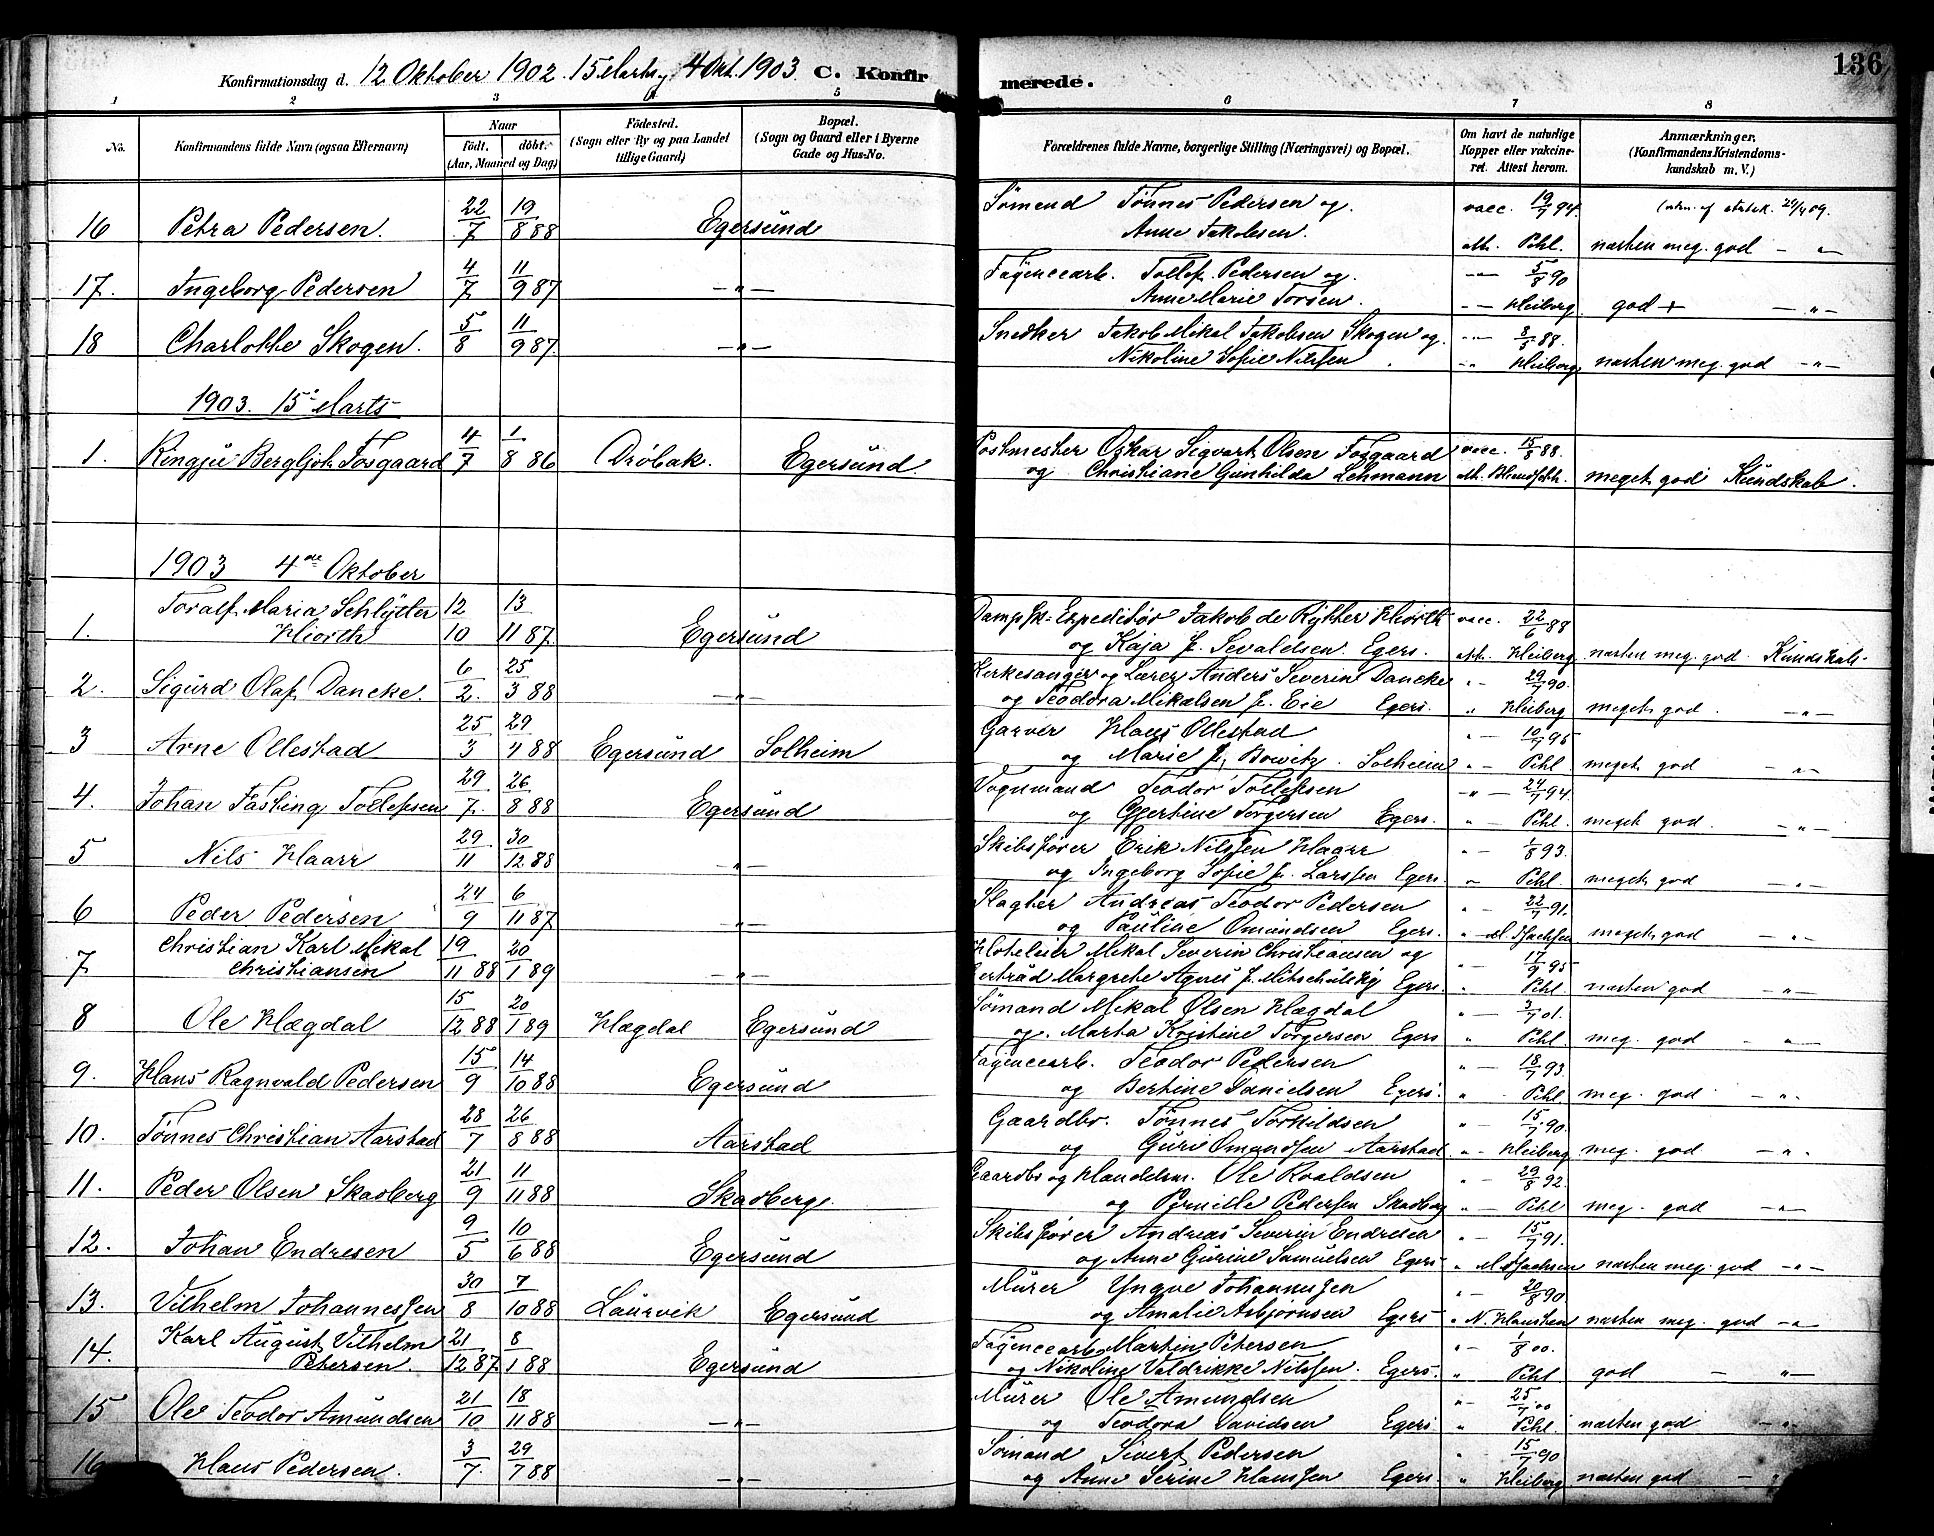 Konfirmationsdag d. 12 Oktober 1902. 15 Marts, 4 Okt. 1903. C. Konfirmerede. 136
1 2 3 4 5 6 7 8
No. Konfirmandens fulde Navn (ogsaa Efternavn) Naar födt. döbt. (Aar, Maaned og Dag) Födested. (Sogn eller By og paa Landet tillige Gaard) Bopæl. (Sogn og Gaard eller i Byerne Gade og Hus-No.) Forældrenes fulde Navne, borgerlige Stilling (Næringsvei) og Bopæl. Om havt de naturlige Kopper eller vakcineret. Attest herom. Anmærkninger, (Konfirmandens Kristendomskundskab m. V.)
16 Petra Pedersen. 22/7 19/8 88 Egersund Sømand Tønnes Pedersen og vacc. 19/7 94.
Anne Jakobsen. att. Pihl. næsten meg. god - " -
17. Ingeborg Pedersen 4/7 11/9 87 - " - Fayencearb. Tollef Pedersen og - " - 5/8 90
Anne Marie Torsen. - - Heiberg god + - " -
18 Charlotte Skogen. 5/8 11/9 87 - " - Snedker Jakob Mikal Jakobsen Skogen og - " - 8/5 88.
Nikoline Sofie Nilssen - " Heiberg næsten meg. god - " -
1903. 15 Marts
1. Ringju Bergljot Fosgaard 4/7 1/8 86 Drøbak. Egersund. Postmester Oskar Sigvart Olsen Fosgaard vacc. 15/8 88.
og Christiane Gunhilda Lehmann att. meget god Kundskab.
1903 4de Oktober
1. Toralf Maria Schlytter Hiorth 12/10 13/11 87 Egersund Dampsk.-Expeditør Jakob de Rytter Hiorth vacc. 22/6 88
og Kaja f. Sevaldsen. Egers. att. Heiberg næsten meg. god. Kundskab.
2. Sigurd Olaf Dancke. 6/2 25/3 88 - " - Kirkesanger og Lærer Anders Severin Dancke " - 29/7 90.
og Teodora Mikalsen f. Eie Egers. " Heiberg meget god. - " -
3 Arne Ollestad 25/3 29/4 88 Egersund Solheim Garver Klaus Ollestad " - 10/7 95
og Marie f. Bowitz. Solheim " - Pihl meget god - " -
4. Johan Fasting Tollefsen 29/7 26/8 88 Egersund Vognmand Teodor Tollefsen - " - 24/7 94.
og Gjertine Torgersen Egers. " - Pihl. meget god. - " -
5 Nils Haarr 29/11 30/12 88 - " - Skibsfører Erik Nilssen Haarr " - 1/8 93.
og Ingeborg Sofie f. Larssen Egers. " Pihl. meget god - " -
6 Peder Pedersen 24/9 6/11 87 - " - Slagter Andreas Teodor Pedersen " - 22/7 91.
og Pauline Omundsen Egers. " M. Isachsen meget god - " -
7 Christian Karl Mikal Christiansen 19/11 88 20/1 89 - " - Hoteleier Mikal Severin Christiansen og " - 17/9 95
Gertrud Margrethe Agnes f. Mitschulsky Egers. " Pihl. næsten god - " -
8 Ole Hægdal 15/12 88 20/1 89 Hægdal Egersund Sømand Mikal Olsen Hægdal " - 3/7 01.
og Marta Kristine Torgersen Egers " Pihl meg. god - " -
9. Hans Ragnvald Pedersen 15/9 14/10 88 Egersund Fayencearb. Teodor Pedersen " - 18/7 93.
og Bertine Danielsen Egers. " - Pihl meg. god - " -
10. Tønnes Christian Aarstad 28/7 26/8 88 Aarstad Gaardbr. Tønnes Torkildsen " - 15/7 90.
og Guri Omundsen Aarstad " - Heiberg meg. god - " -
11. Peder Olsen Skadberg 21/9 11/11 88 Skadberg. Gaardbr og Handelsm. Ole Roaldsen " - 29/8 92.
og Pernille Pedersen Skadberg " - Pihl meg. god - " -
12. Johan Endresen 9/5 10/6 88 Egersund Skibsfører Andreas Severin Endresen " - 15/7 91.
og Anne Gurine Samuelsen Egers " M. Isachsen næsten meg. god - " -
13. Vilhelm Johannessen 30/8 7/10 88 Laurvik Egersund Murer Yngve Johannessen " - 20/8 90
og Amalie Asbjørnsen Egers " N. Klaussen næsten meg. god - " -
14. Karl August Vilhelm Petersen. 21/12 87 8/1 88 Egersund Fayencearb. Martin Petersen " - 1/8 00.
og Nikoline Valdrikke Nilssen. Egers. " Pihl god - " -
15 Ole Teodor Amundsen 21/10 18/11 88 - " - Murer Ole Amundsen " - 25/7 00
og Teodora Davidsen Egers " Pihl. næsten god - " -
16 Hans Pedersen. 3/7 29/7 88 - " - Sømand Sivert Pedersen " 15/7 90
og Anne Serine Hanssen Egers. " Heiberg næsten god - "